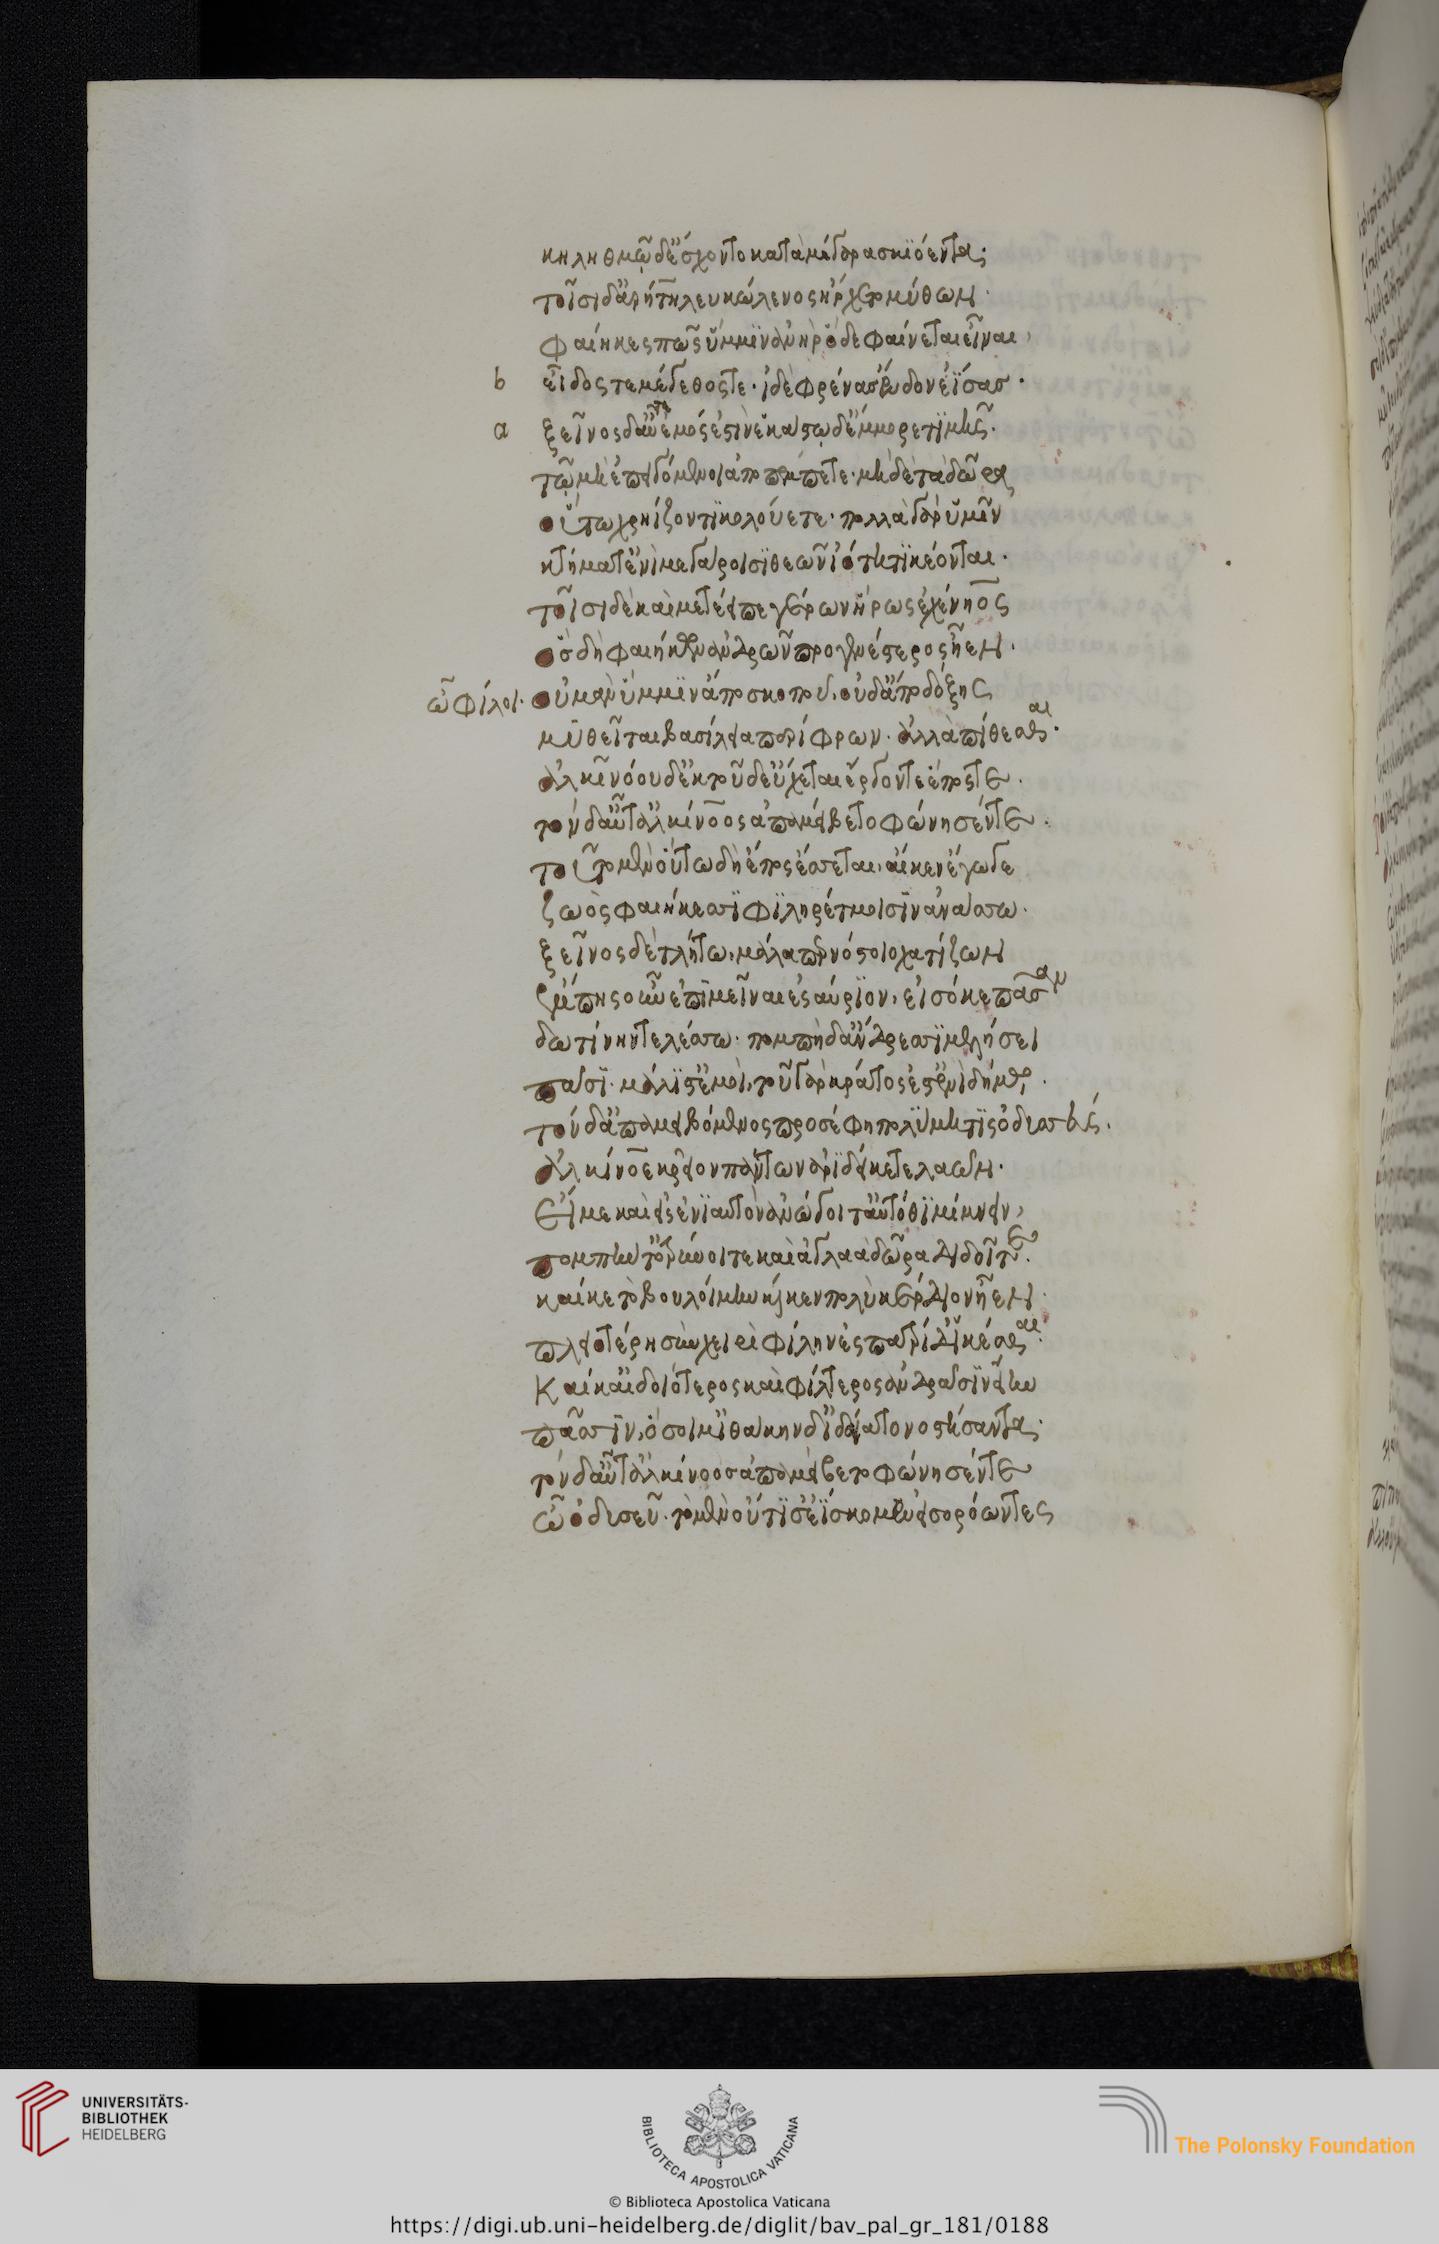 κηληθμῷ δ' ἔσχοντο κατὰ μέγαρα σκιόεντα·
τοῖσι δ' ἀρήτη λευκώλενος ἤρχετο μύθων·
φαίηκες πῶς ὔμμιν ἀνὴρ ὅδε φαίνεται εἶναι,
b εἶδός τε μέγεθός τε· ἰδὲ φρένας ἔνδον ἐΐσας·
a ξεῖνος δ' αὖτ' ἐμός ἐστιν ἕκαστος δ' ἔμμορε τιμῆς·
τῷ μὴ ἐπειγόμενοι ἀποπέμπετε· μηδὲ τὰ δῶρα
οὕτω χρηίζοντι κολούετε· πολλὰ γὰρ ὑμῖν
κτήματ' ἐνὶ μεγάροισι θεῶν ἰότητι κέονται·
τοῖσι δὲ καὶ μετέειπε γέρων ἥρως ἐχένηος
ὃς δὴ φαιήκων ἀνδρῶν προγενέστερος ἦεν·
ὦ φίλοι· οὐ μὰν ὔμμιν ἀπὸ σκοποῦ, οὐδ' ἀπὸ δόξης
μυθεῖται βασίλεια περίφρων· ἀλλὰ πίθεσθε αι·
ἀλκινόου δ' ἐκ τοῦδ' ἔχεται ἔργόν τε ἔπος τε·
τὸν δ' αὖτ' ἀλκίνοος ἀπαμείβετο φώνησέν τε·
τοῦτο μὲν οὕτω δὴ ἔπος ἔσσεται, αἴ κεν ἔγωγε
ζωὸς φαιήκεσσι φιληρέτμοισιν ἀνάσσω·
ξεῖνος δὲ τλήτω, μάλα περ νόστοιο χατίζων
ἔμπης οὖν ἐπιμεῖναι ἐς αὔριον, εἰσόκε πᾶσαν
δωτίνην τελέσω· πομπὴ δ' ἄνδρεσσι μελήσει
πᾶσι· μάλιστ' ἐμοὶ, τοῦ γὰρ κράτος ἔστ' ἐνὶ δήμῳ·
τὸν δ' ἀπαμειβόμενος προσέφη πολύμητις ὀδυσσεύς·
ἀλκίνοε κρεῖον πάντων ἀριδείκετε λαῶν·
εἴ με καὶ εἰς ἐνιαυτὸν ἀνώγοιτ' αὐτόθι μίμνειν,
πομπήν τ' ὀτρύνοιτε καὶ ἀγλαὰ δῶρα διδοῖτε·
καί κε τὸ βουλοίμην καί κεν πολὺ κέρδιον ἦεν·
πλειοτέρῃ σὺν χειρὶ φίλην ἐς πατρίδ' ἱκέσθαι·
καί κ' αἰδοιότερος καὶ φίλτερος ἀνδράσιν εἴην
πᾶσιν, ὅσοι μ' ἰθάκην δὲ ἰδοίατο νοστήσαντα·
τὸν δ' αὖτ' ἀλκίνοος ἀπαμείβετο φώνησέν τε
ὦ ὀδυσεῦ· τὸ μὲν οὔτι σ' ἐΐσκομεν εἰσορόωντες
UNIVERSITÄTS-
BIBLIOTHEK
HEIDELBERG
BIBLIOTECA APOSTOLICA VATICANA
The Polonsky Foundation
© Biblioteca Apostolica Vaticana
https://digi.ub.uni-heidelberg.de/diglit/bav_pal_gr_181/0188